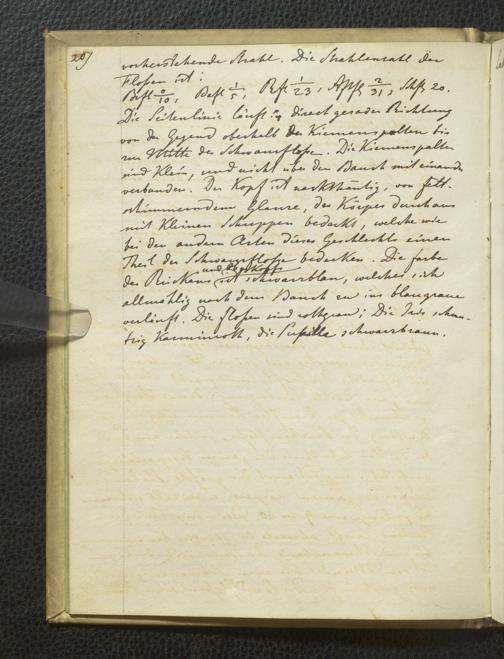 207
vorherstehende Strahl. Die Strahlenzahl der
Floßen ist:
Brfl 0/10, Bafl 1/5, Rfl 1/23, Affl 2/31, Schfl 20.
Die Seitenlinie läuft in direct gerader Richtung
von der Gegend oberhalb der Kiemenspalten bis
zur Mitte der Schwanzfloße. Die Kiemenspalten
sind klein, und nicht über den Bauch mit einander
verbunden. Der Kopf ist nackthäutig, von
schimmerndem Glanze, der Körper durchaus
mit kleinen Schuppen bedeckt, welche wie
bei den andern Arten dieses Geschlechts einen
Theil der Schwanzfloße bedecken. Die Farbe
des Rückens und des Kopfs ist schwarzblau, welches sich
allmählig nach dem Bauch zu ins blaugraue
verläuft. Die Floßen sind rothgrau; Die Iris schmu-
tzig Karminroth, die Pupille schwarzbraun.